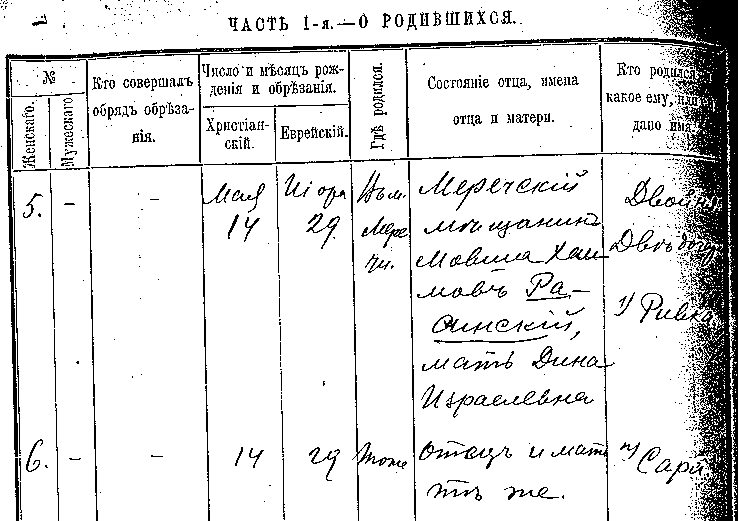 ЧАСТЬ I-я.—О РОДИВШИХСЯ.
№
Женскаго.
Мужескаго
Кто совершалъ
обрядъ обрѣза-
нія.
Число и мѣсяцъ рож-
денія и обрѣзанія.
Христіан-
скій.
Еврейскій.
Гдѣ родился.
Состояніе отца, имена
отца и матери.
Кто родился
какое ему, или
дано имя
5.
-
-
Мая
14
29
Въ м.
Мере
чи.
Меречскій
мѣщанинъ
Мовша Хаи
мовъ
мать Дина
Израелевна
Двойня
Двѣ
1) Ривка
6.
-
-
14
29
тоже
отецъ и мать
тѣ же.
Сара